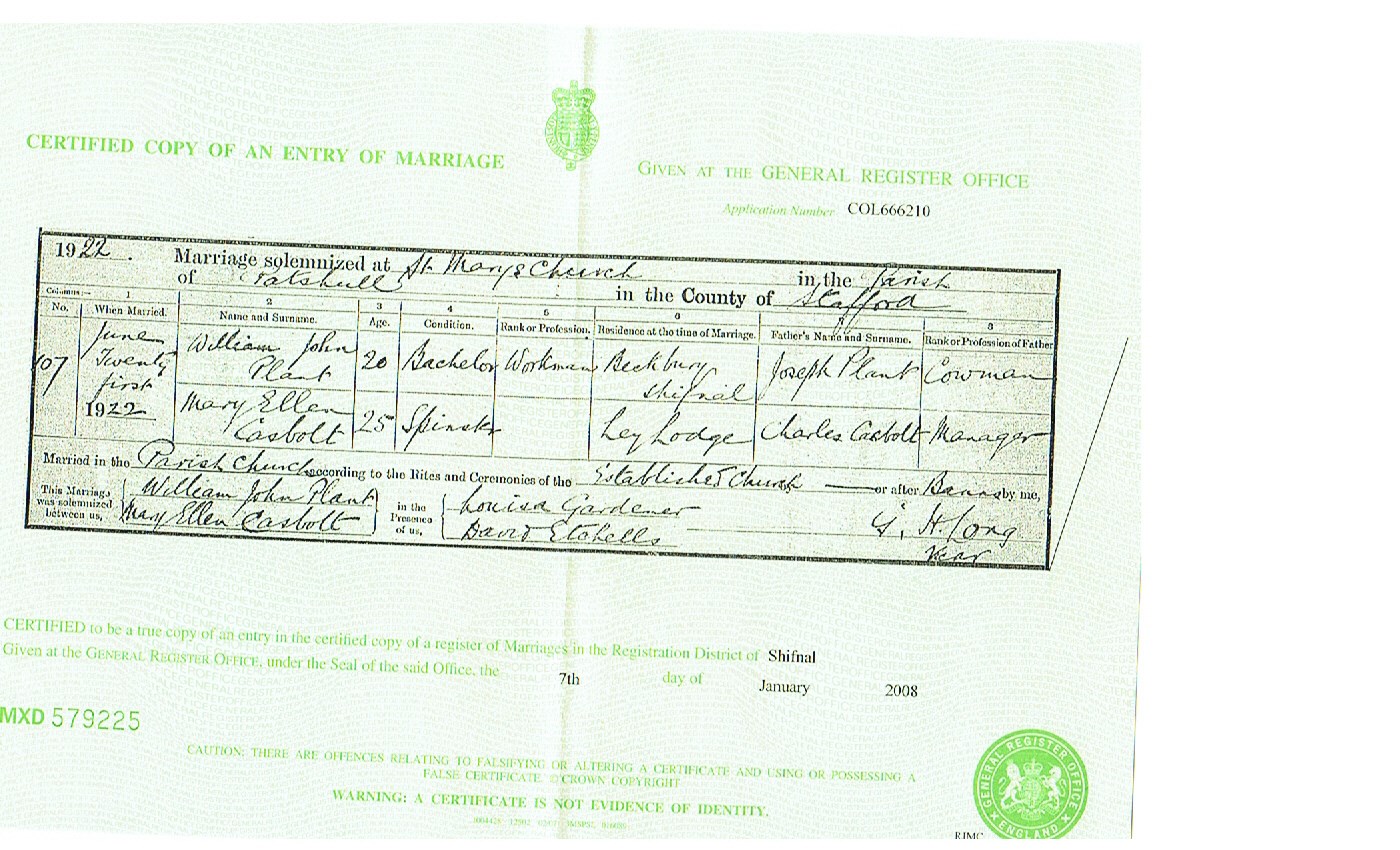 CERTIFIED COPY OF AN ENTRY OF MARRIAGE
GIVEN AT THE GENERAL REGISTER OFFICE
Application Number COL666210
1922. Marriage solemnized at St. Mary's Church in the Parish
of Patshull in the County of Stafford
Columns:— 1 2 3 4 5 6 7 8
No. When Married. Name and Surname. Age. Condition. Rank or Profession. Residence at the time of Marriage. Father's Name and Surname. Rank or Profession of Father
107
June
Twenty
first
1922
William John
Plant
20
Bachelor
Workman
Beckbury
Shifnal
Joseph Plant
Cowman
Mary Ellen
Casbolt
25
Spinster
Ley Lodge
Charles Casbolt
Manager
Married in the Parish Church according to the Rites and Ceremonies of the Established Church or after Banns by me,
This Marriage
was solemnized
between us,
William John Plant
Mary Ellen Casbolt
in the
Presence
of us,
Louisa Gardener
David Etchells
H. Long
Vicar
CERTIFIED to be a true copy of an entry in the certified copy of a register of Marriages in the Registration District of Shifnal
Given at the GENERAL REGISTER OFFICE, under the Seal of the said Office, the 7th day of January 2008
MXD 579225
CAUTION: THERE ARE OFFENCES RELATING TO FALSIFYING OR ALTERING A CERTIFICATE AND USING OR POSSESSING A
FALSE CERTIFICATE. © CROWN COPYRIGHT
WARNING: A CERTIFICATE IS NOT EVIDENCE OF IDENTITY.
GENERAL REGISTER OFFICE
ENGLAND